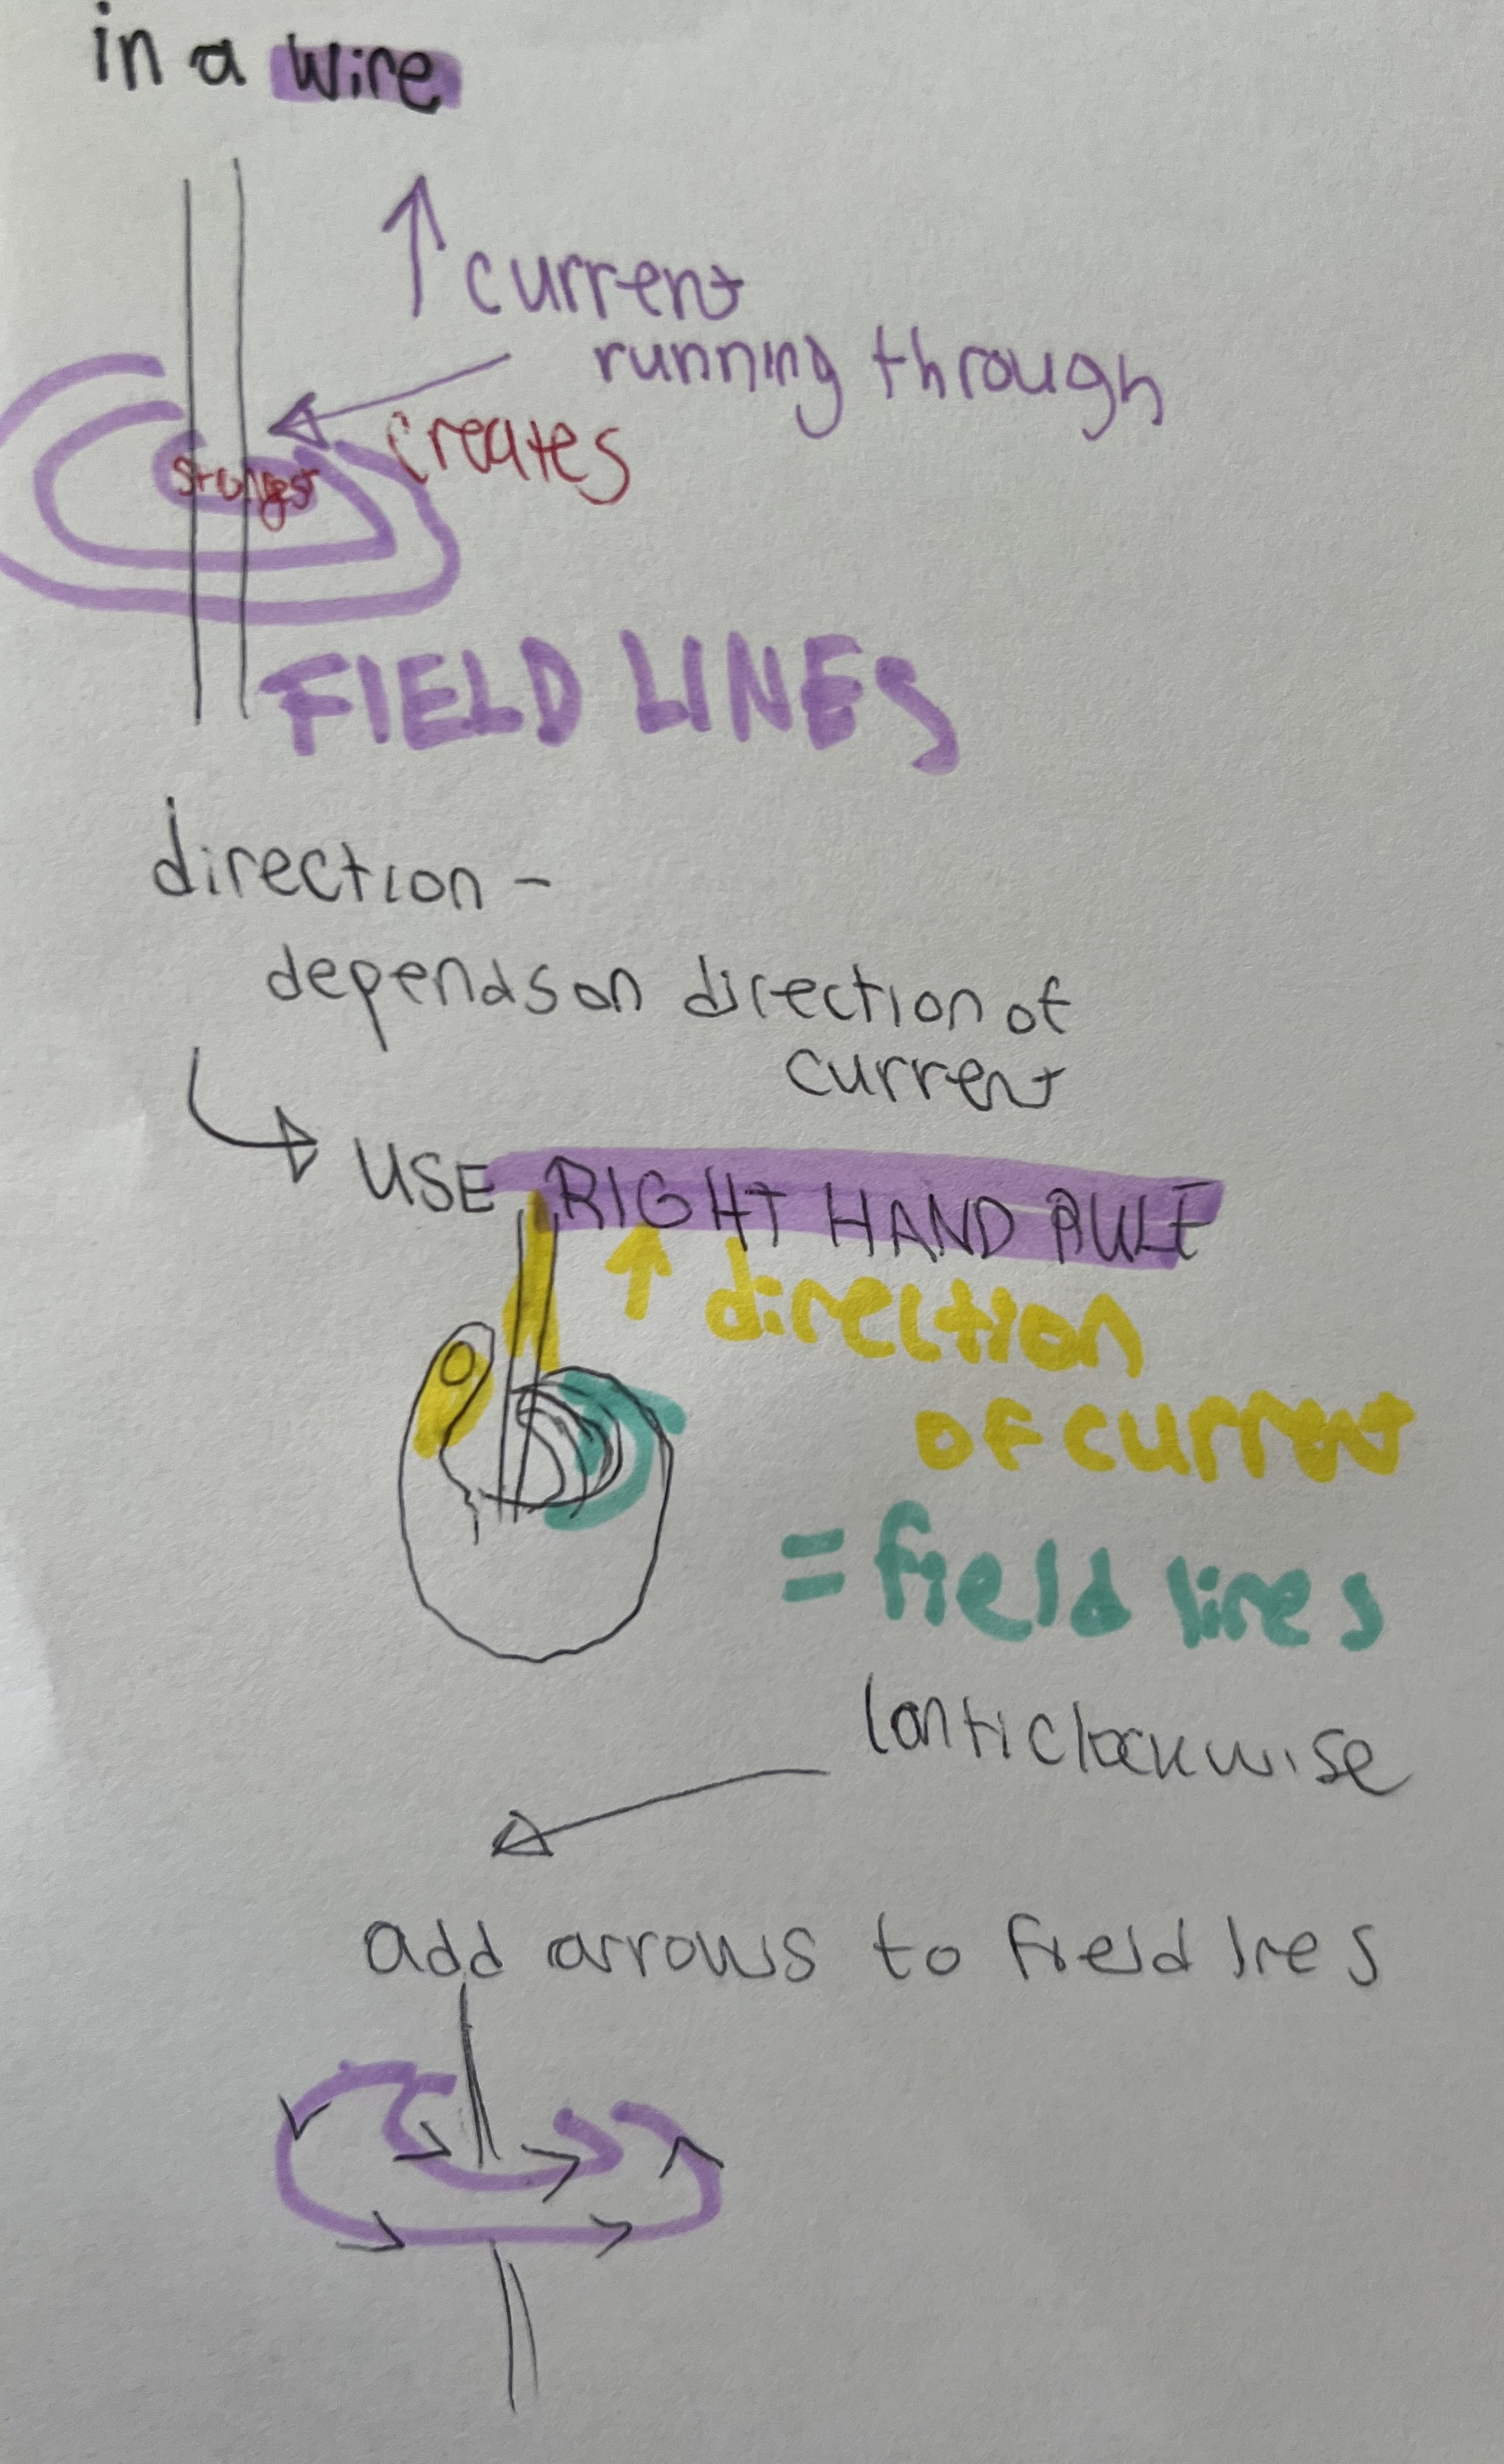 in a wire
↑ current
running through
creates
strongest
FIELD LINES
direction -
depends on direction of
current
USE RIGHT HAND RULE
↑ direction
of current
= field lines
(anticlockwise
add arrows to field lines